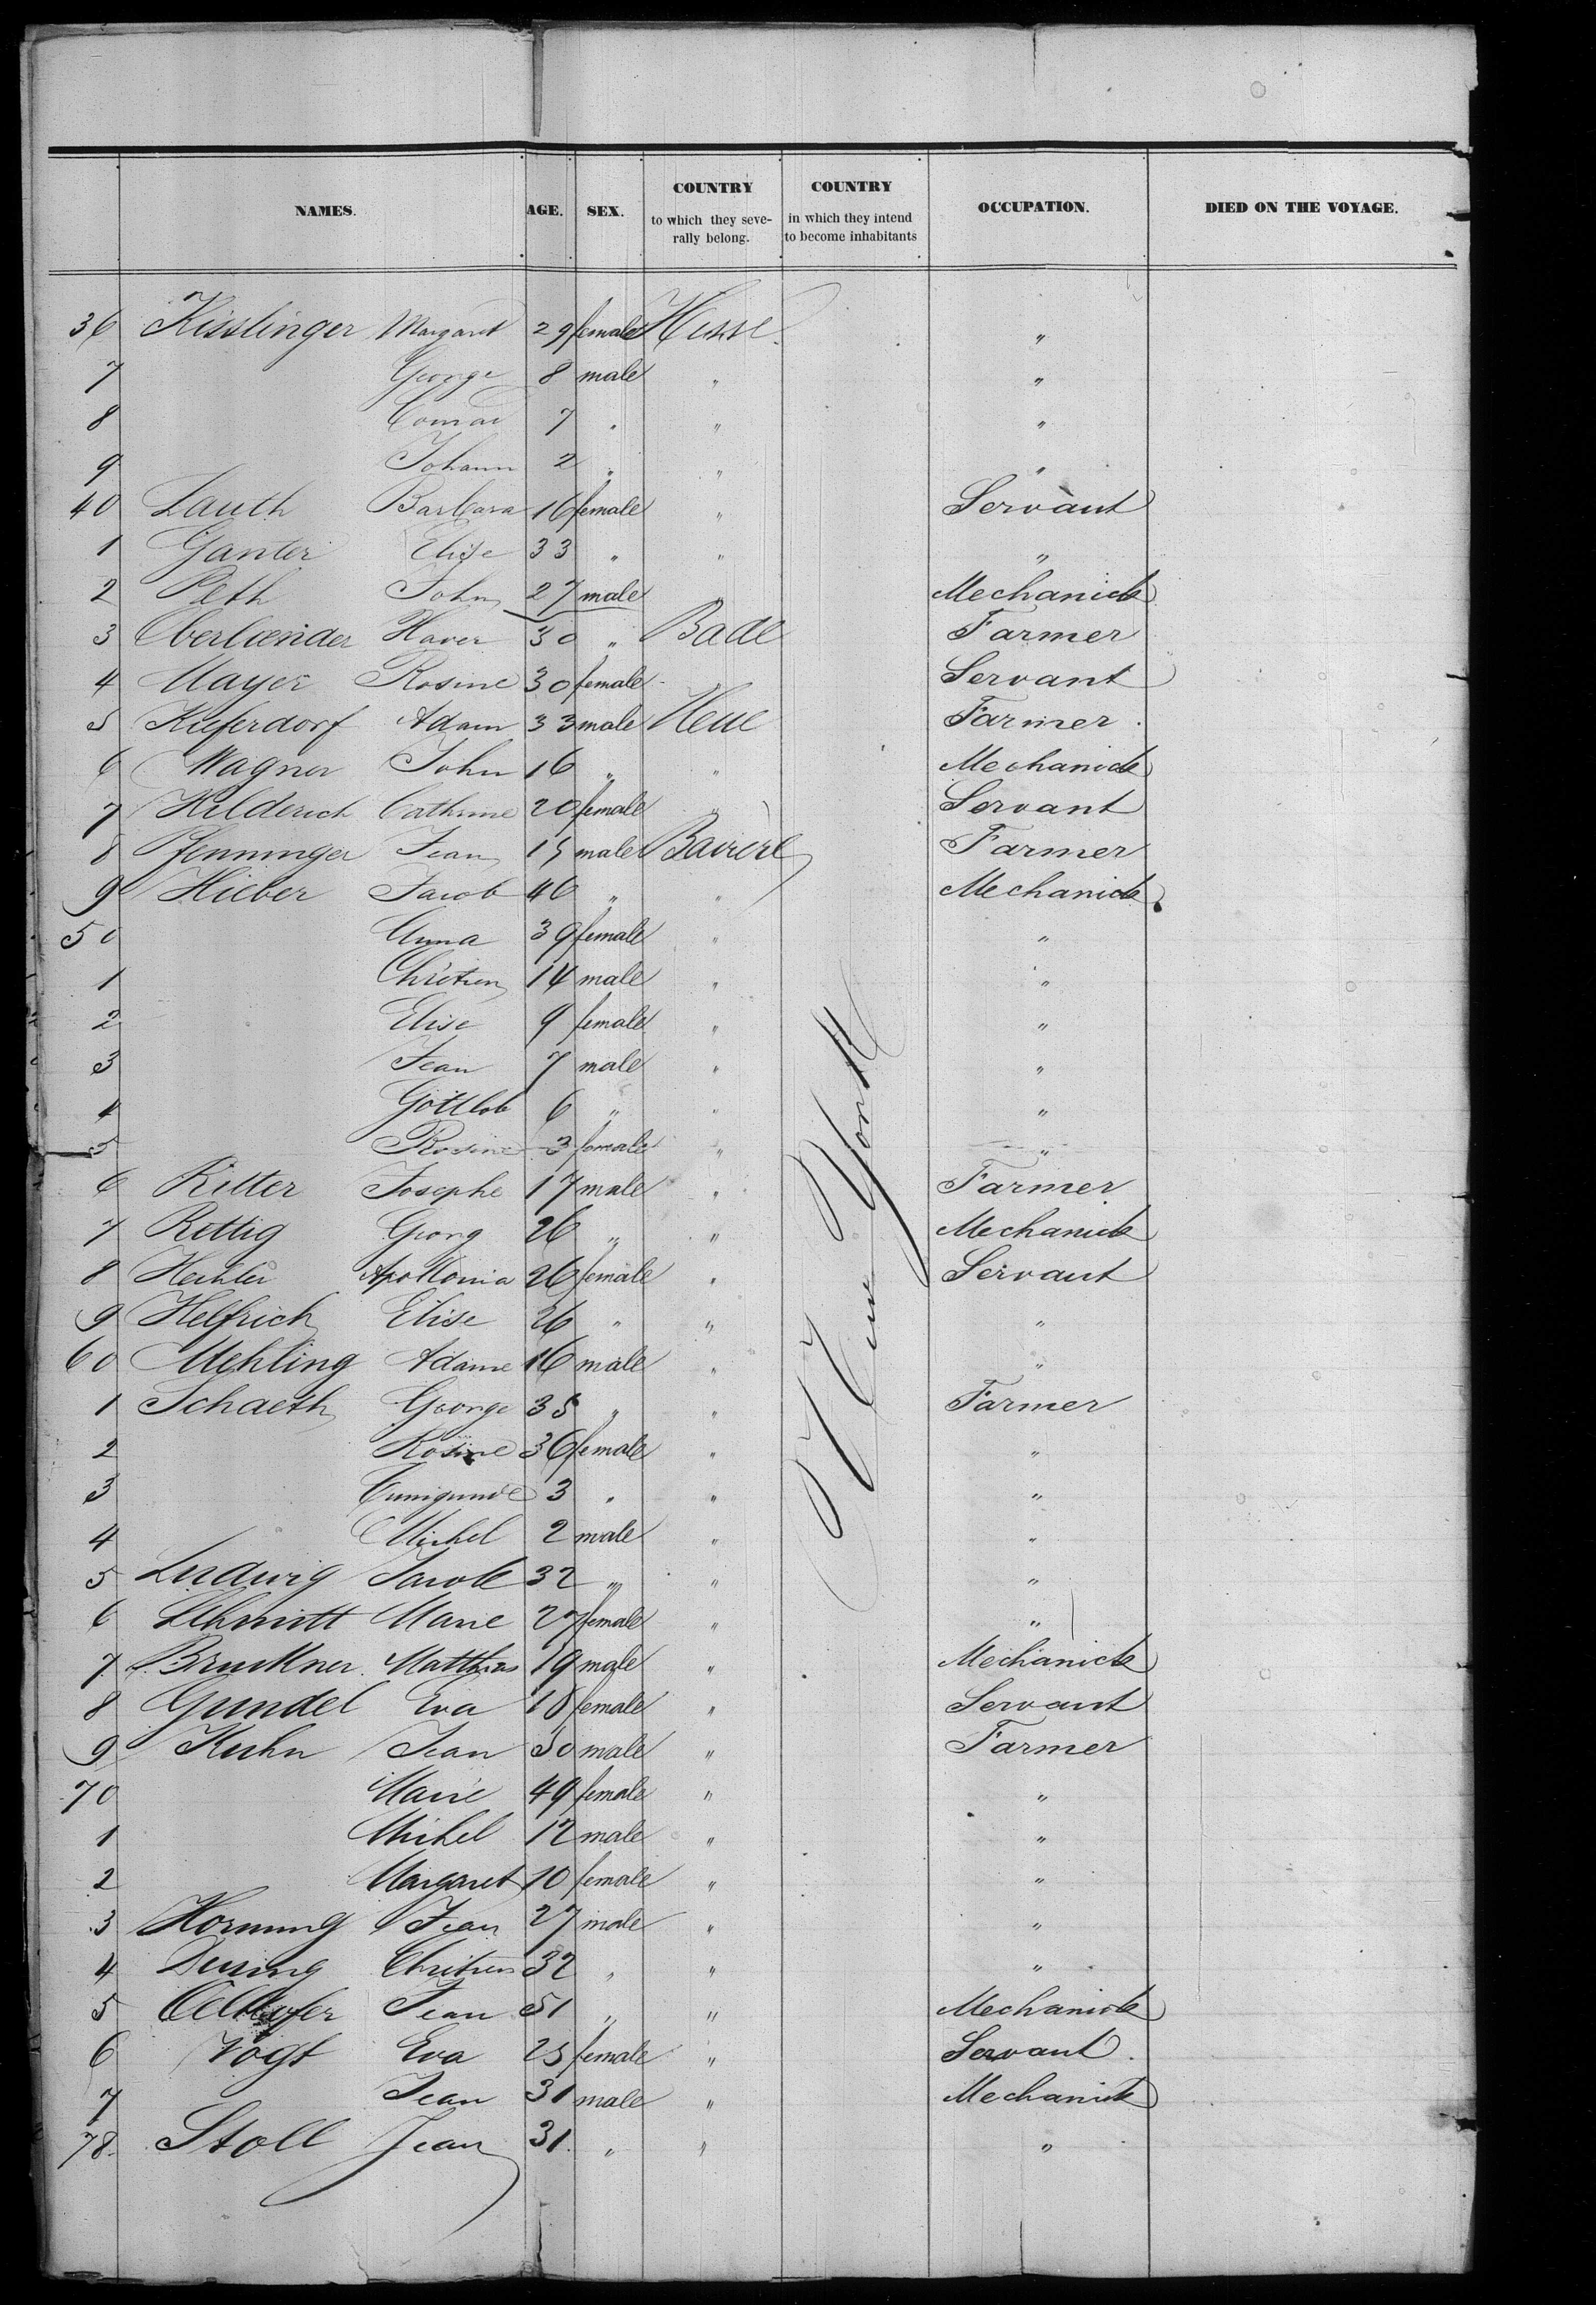 NAMES. AGE. SEX. COUNTRY to which they seve-rally belong. COUNTRY in which they intend to become inhabitants OCCUPATION. DIED ON THE VOYAGE.
36 Kisslinger Margaret 29 female Hesse "
7 George 8 male " "
8 Conrad 7 " " "
9 Johann 2 " " "
40 Lauth Barbara 16 female " Servant
1 Ganter Elise 33 " " "
2 Peth John 27 male " Mechanick
3 Oberlænder Xaver 30 " Bade Farmer
4 Mayer Rosine 30 female " Servant
5 Kieferdorf Adam 33 male Hesse Farmer
6 Wagner John 16 " " Mechanick
7 Hilderich Cathrine 20 female " Servant
8 Pfenninger Jean 15 male Baviere Farmer
9 Hieber Jacob 46 " " Mechanick
50 Anna 39 female " "
1 Chretien 14 male " "
2 Elise 9 female " "
3 Jean 7 male " "
4 Gottlob 6 " " "
5 Rosine 3 female " "
6 Ritter Josephe 17 male " Farmer
7 Rettig Georg 26 " " Mechanick
8 Hechler Apollonia 26 female " Servant
9 Helfrich Elise 26 " " "
60 Mehling Adame 16 male " "
1 Schaeth George 35 " " Farmer
2 Rosine 36 female " "
3 Cunigunde 3 " " "
4 Michel 2 male " "
5 Ludwig Jacob 32 " " "
6 Schmitt Marie 27 female " "
7 Bruckner Matthias 19 male " Mechanick
8 Gundel Eva 18 female " Servant
9 Kuhn Jean 50 male " Farmer
70 Marie 49 female " "
1 Michel 12 male " "
2 Margaret 10 female " "
3 Hornung Jean 27 male " "
4 Chretien 32 " " "
5 Jean 51 " " Mechanick
6 Vogt Eva 25 female " Servant
7 Jean 31 male " Mechanick
78 Stoll Jean 31 " " "
New York